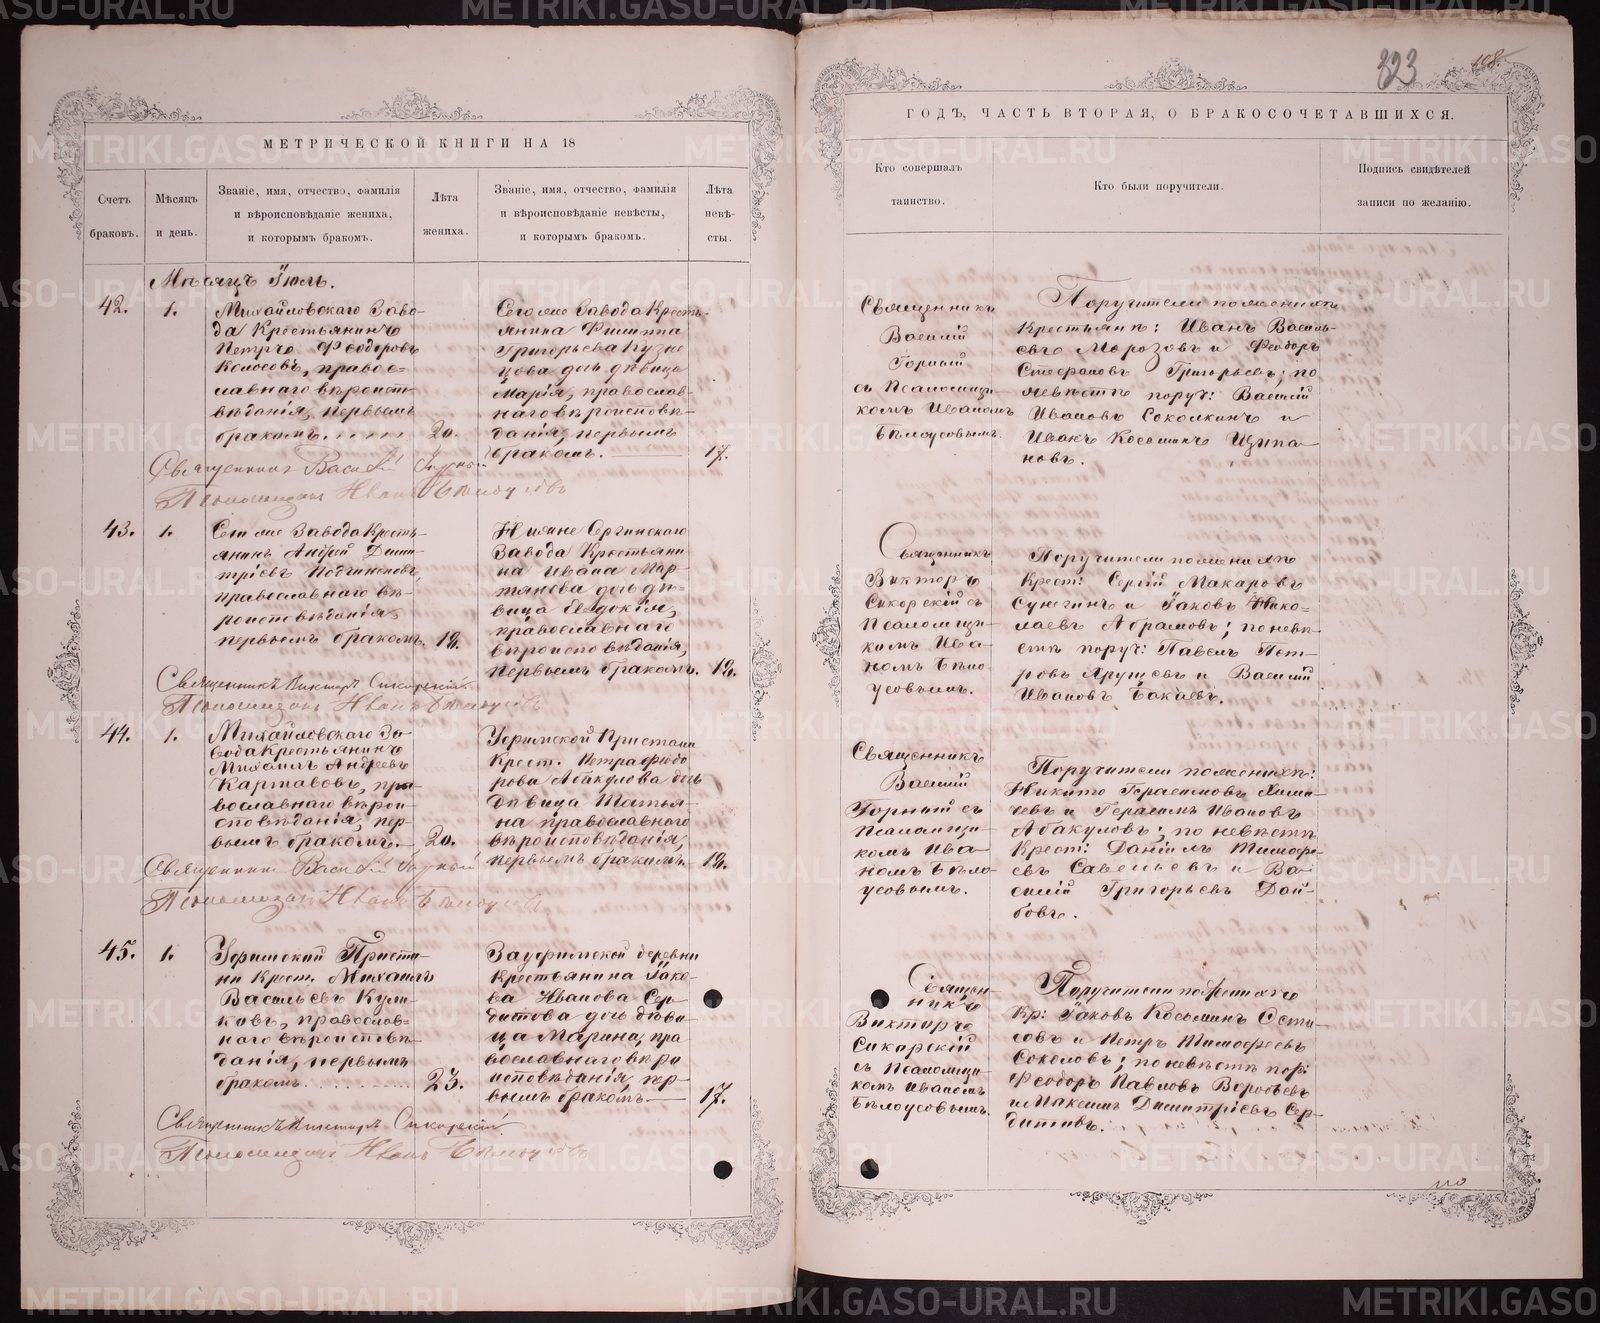 МЕТРИЧЕСКОЙ КНИГИ НА 18
Счетъ
браковъ.
Мѣсяцъ
и день.
Званіе, имя, отчество, фамилія
и вѣроисповѣданіе жениха,
и которымъ бракомъ.
Лѣта
жениха.
Званіе, имя, отчество, фамилія
и вѣроисповѣданіе невѣсты,
и которымъ бракомъ.
Лѣта
невѣ-
сты.
Мѣсяцъ Іюль.
42.
1.
Михайловскаго Заво-
да Крестьянинъ
Петръ Ѳеодоровъ
Колосовъ, правос-
лавнаго вѣроиспо-
вѣданія, первымъ
бракомъ.
20.
Сего же Завода Кресть-
янина Филиппа
Григорьева Кузне
цова дочь дѣвица
Марія, православ-
наго вѣроисповѣ-
данія, первымъ
бракомъ.
17.
Священникъ Василій Горный
Псаломщикъ Иванъ Бѣлоусовъ
43.
1.
Сего же Завода Кресть-
янинъ Андрей Дими-
тріевъ Подчиненовъ,
православнаго вѣ-
роисповѣданія,
первымъ бракомъ.
18.
Нижне Сергинскаго
Завода Крестьяни
на Ивана Мар-
тянова дочь дѣ-
вица Евдокія,
православнаго
вѣроисповѣданія,
первымъ бракомъ.
18.
Священникъ Викторъ Сикорскій
Псаломщикъ Иванъ Бѣлоусовъ
44.
1.
Михайловскаго За-
вода Крестьянинъ
Михаилъ Андреевъ
Картавовъ, пра-
вославнаго вѣрои-
сповѣданія, пер-
вымъ бракомъ.
20.
Уфимской Пристани
Крест. Петра Ѳедо
рова дочь
дѣвица Татья-
на православнаго
вѣроисповѣданія,
первымъ бракомъ.
18.
Священникъ Василій Горный
Псаломщикъ Иванъ Бѣлоусовъ
45.
1.
Уфимской Приста-
ни Крест. Михаилъ
Васильевъ Кули-
ковъ, православ-
наго вѣроисповѣ-
данія, первымъ
бракомъ
23.
Зауфимской деревни
Крестьянина Іако-
ва Иванова Сер-
дитова дочь дѣви-
ца Марина, пра-
вославнаго вѣро
исповѣданія, пер-
вымъ бракомъ
17.
Священникъ Викторъ Сикорскій
Псаломщикъ Иванъ Бѣлоусовъ
323
108.
ГОДЪ, ЧАСТЬ ВТОРАЯ, О БРАКОСОЧЕТАВШИХСЯ.
Кто совершалъ
таинство.
Кто были поручители.
Подпись свидѣтелей
записи по желанію.
Священникъ
Василій
Горный
съ Псаломщи-
комъ Иваномъ
Бѣлоусовымъ.
Поручители по женихѣ
Крестьяне: Иванъ Василь-
евъ Морозовъ и Ѳеодоръ
Стефановъ Григорьевъ; по
невѣстѣ поруч: Василій
Ивановъ Соколкинъ и
Иванъ Косьминъ Щипа-
новъ.
Священникъ
Викторъ
Сикорскій съ
Псаломщи-
комъ Ива-
номъ Бѣло-
усовымъ.
Поручители по женихѣ
Крест: Сергій Макаровъ
Сунегинъ и Іаковъ Нико-
лаевъ Абрамовъ; по невѣ-
стѣ поруч: Павелъ Пет-
ровъ Ярушевъ и Василій
Ивановъ Бакаевъ.
Священникъ
Василій
Горный съ
Псаломщи-
комъ Ива-
номъ Бѣло-
усовымъ.
Поручители по женихѣ:
Никито Герасимовъ
и Герасимъ Ивановъ
Абакумовъ; по невѣстѣ
Крест: Даніилъ Тимофе-
евъ Савельевъ и Ва-
силій Григорьевъ Дол-
бовъ.
Священ-
никъ
Викторъ
Сикорскій
съ Псаломщи-
комъ Иваномъ
Бѣлоусовымъ.
Поручители по женихѣ
Кр: Іаковъ Косьминъ Оста-
совъ и Петръ Тимофеевъ
Соколовъ; по невѣстѣ пор:
Ѳеодоръ Павловъ Воробьевъ
и Максимъ Димитріевъ Сер-
дитовъ.
METRIKI.GASO-URAL.RU